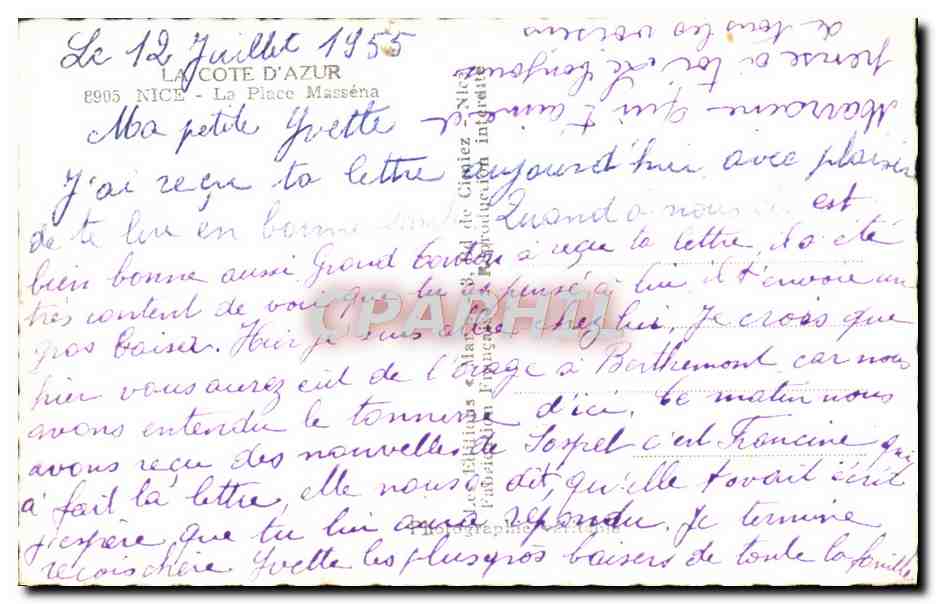 Le 12 Juillet 1955
LA COTE D'AZUR
8905 NICE - La Place Masséna
Ma petite Yvette
J'ai reçu ta lettre aujourd'hui avec plaisir
de te lire en bonne santé. Quand a nous est
bien bonne aussi Grand à reçu ta lettre, il a été
très content de voir que tu as pensé a lui, il t'envoie un
gros baiser. Hier je suis allée chez lui. Je crois que
hier vous aurez eut de l'orage à Berthemont car nous
avons entendu le tonnerre d'ici. Le matin nous
avons reçu des nouvelles de Sospel c'est Francine qui
à fait la lettre, elle nous a dit, qu'elle tovait écrit
j'espère que tu lui aura répondu. Je termine
reçois chère Yvette les plus gros baisers de toute la famille
Marraine qui t'aime et
pense a toi. Le bonjour
de tous les voisins
Les Editions « Mar », 3, Bd de Cimiez - Nice
Fabrication Française - Reproduction interdite
Photographie véritable
CPARPHIL